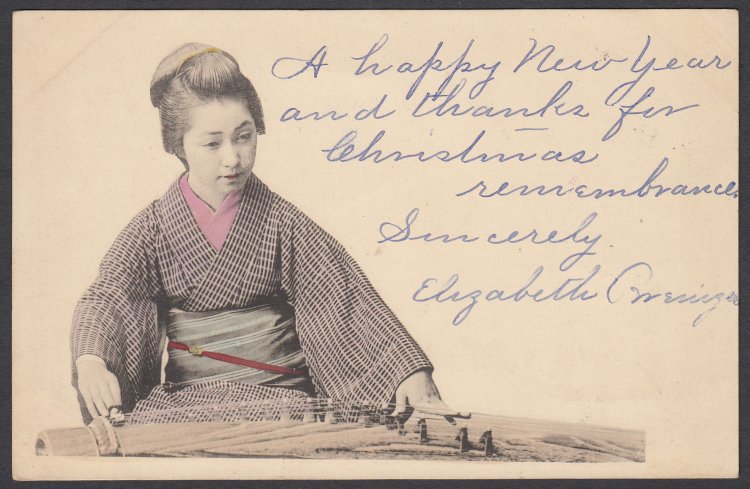 A happy New Year
and thanks for
Christmas
remembrance.
Sincerely.
Elizabeth